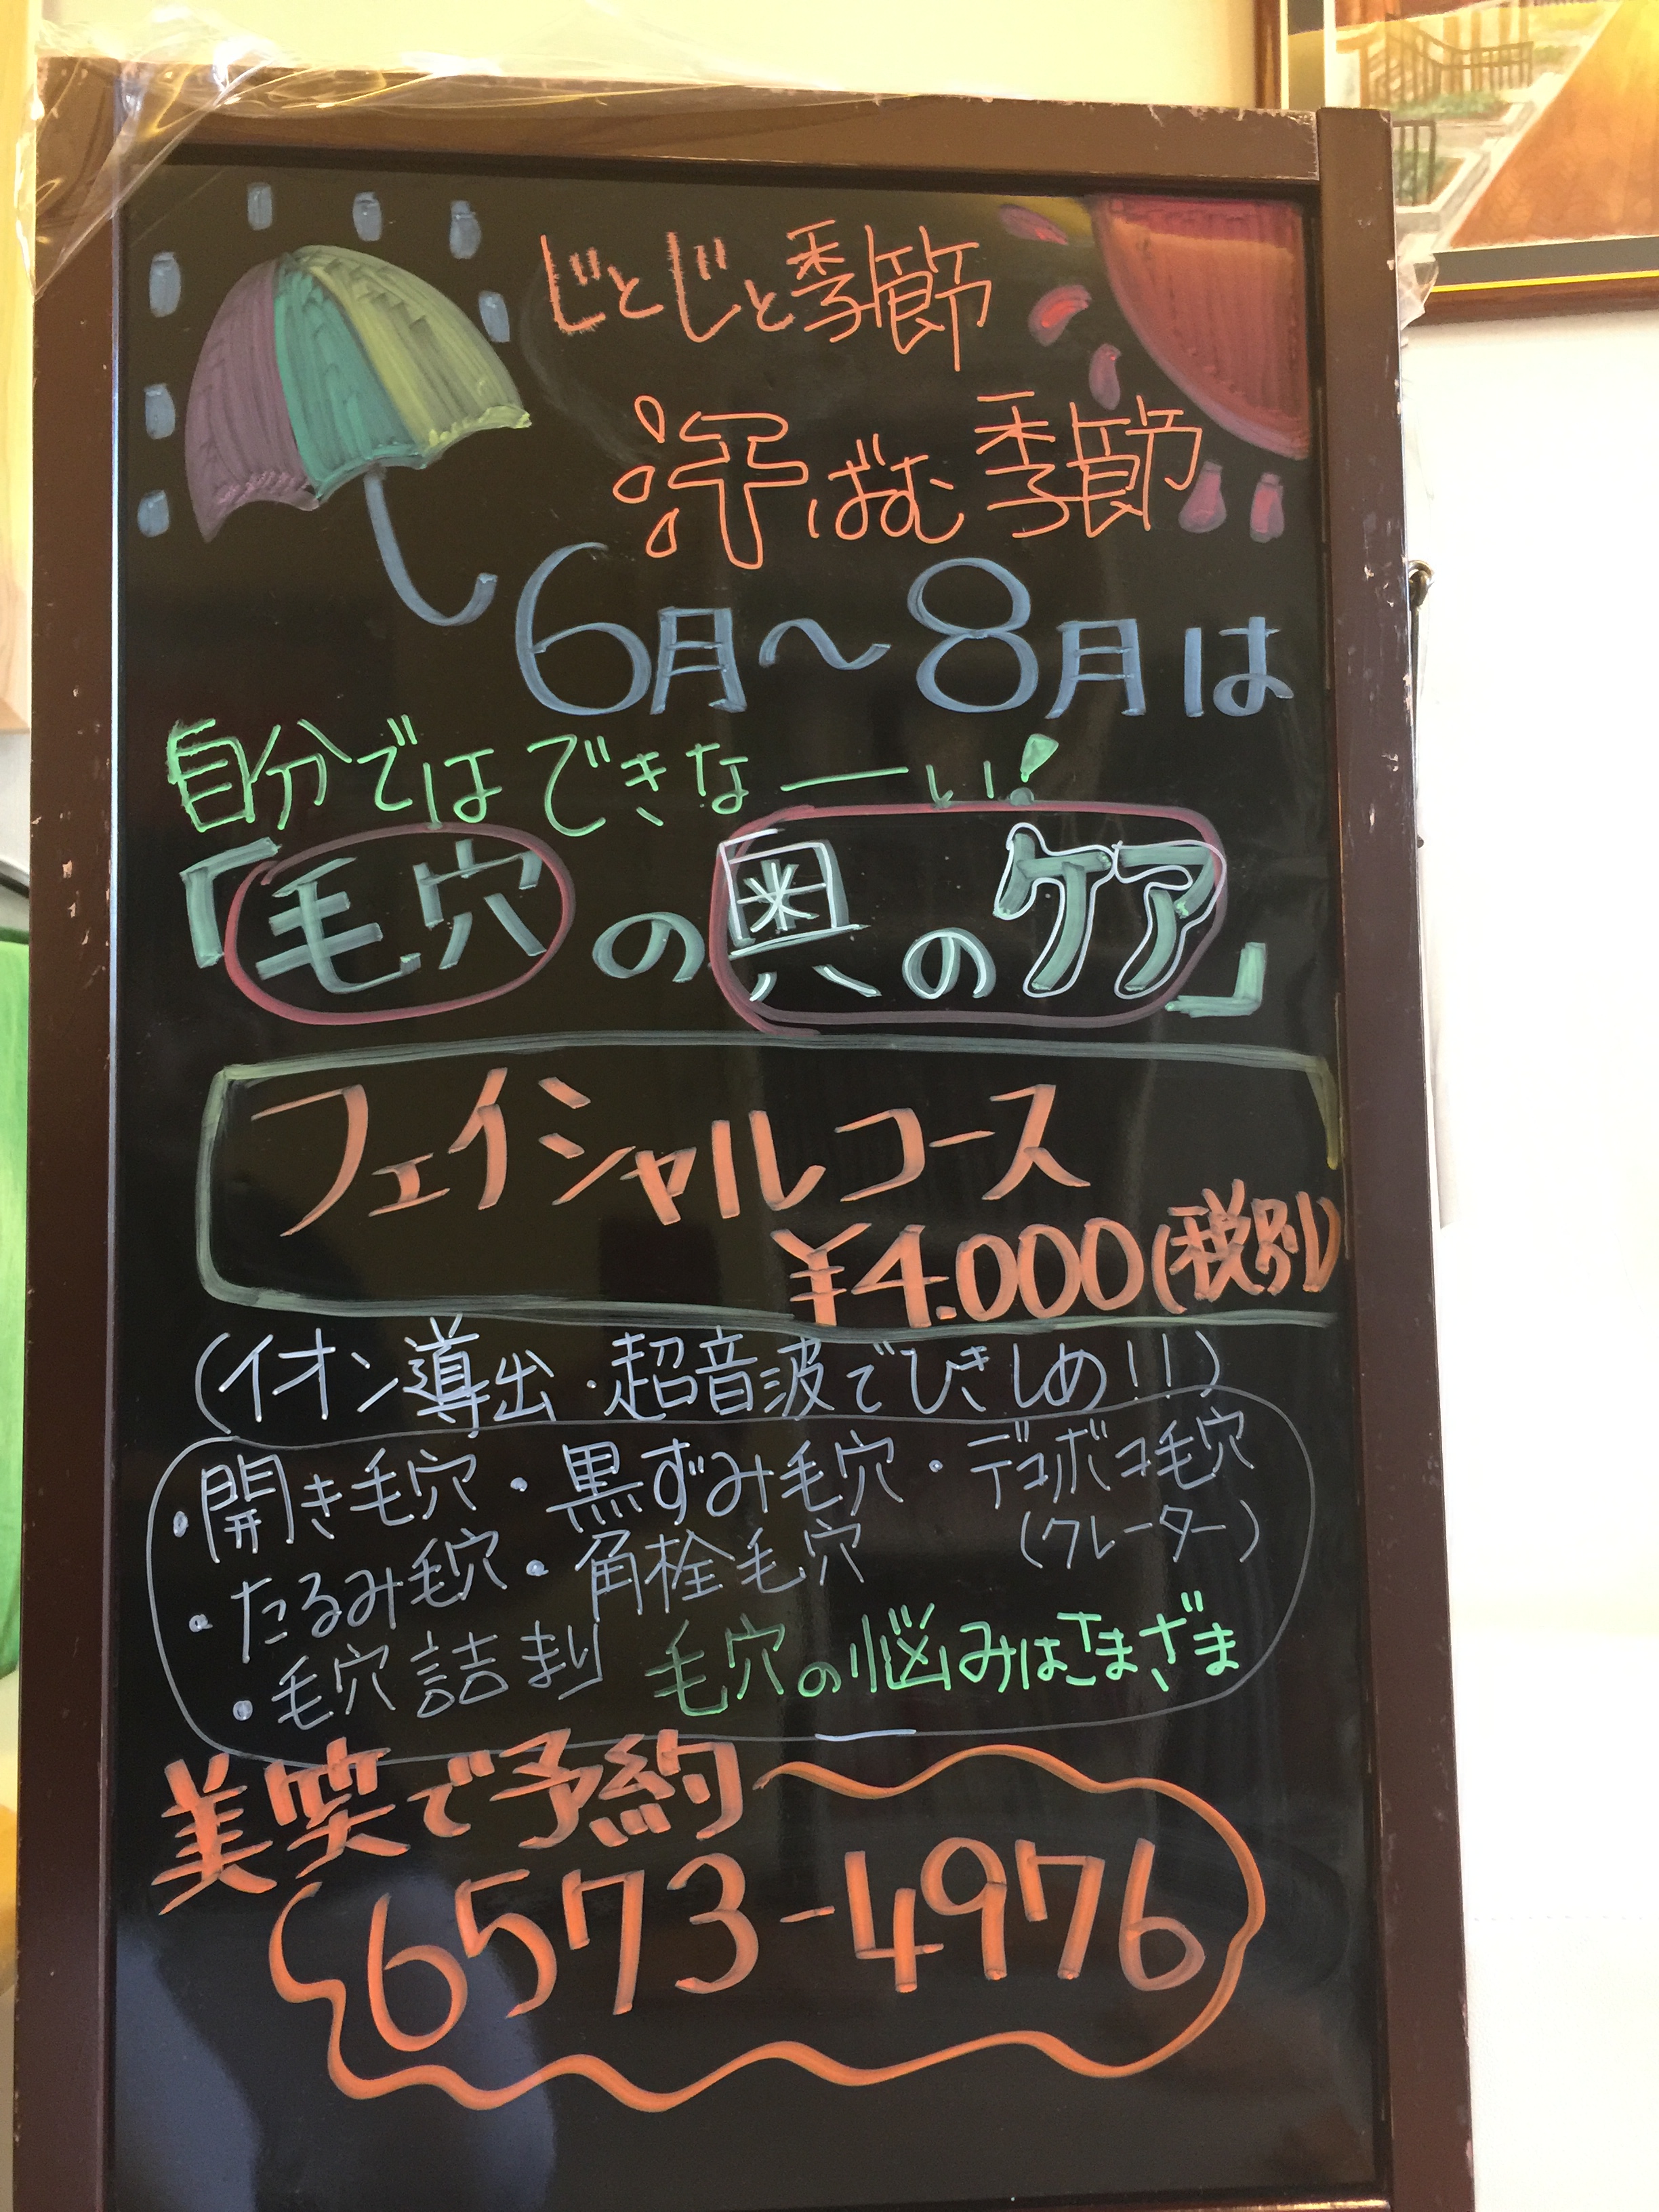 じとじと季節
汗ばむ季節
6月〜8月は
自分ではできなーい!
「毛穴の奥のケア」
フェイシャルコース
¥4.000(税別)
(イオン導出・超音波でひきしめ!!)
・開き毛穴・黒ずみ毛穴・デコボコ毛穴
(クレーター)
・たるみ毛穴・角栓毛穴
・毛穴詰まり 毛穴の悩みはさまざま
美笑で予約
6573-4976